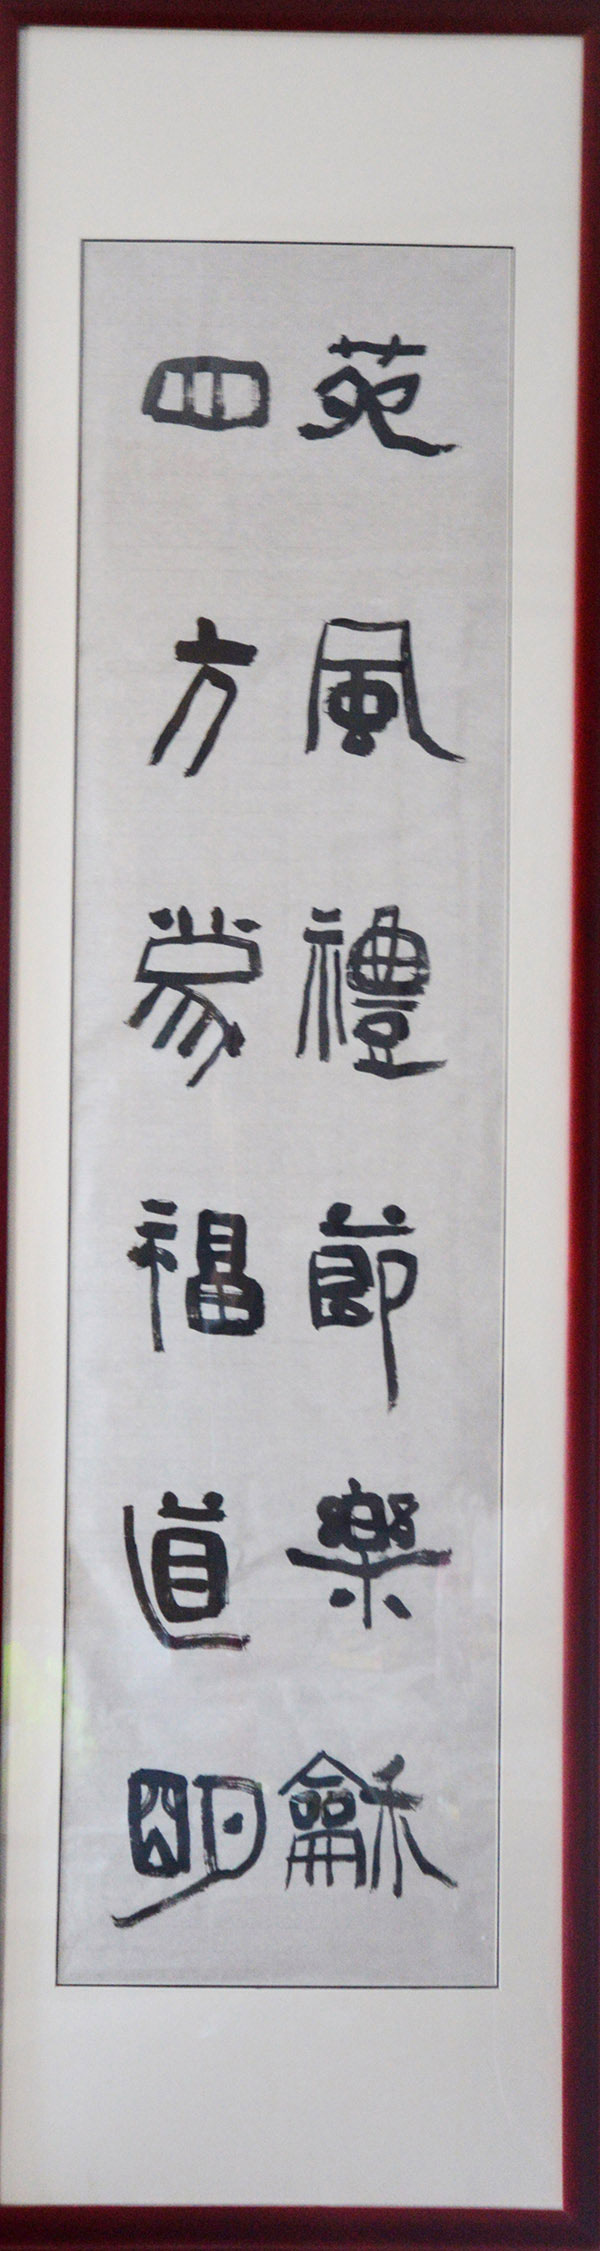 苑風禮節樂龢
四方蒙福道朙